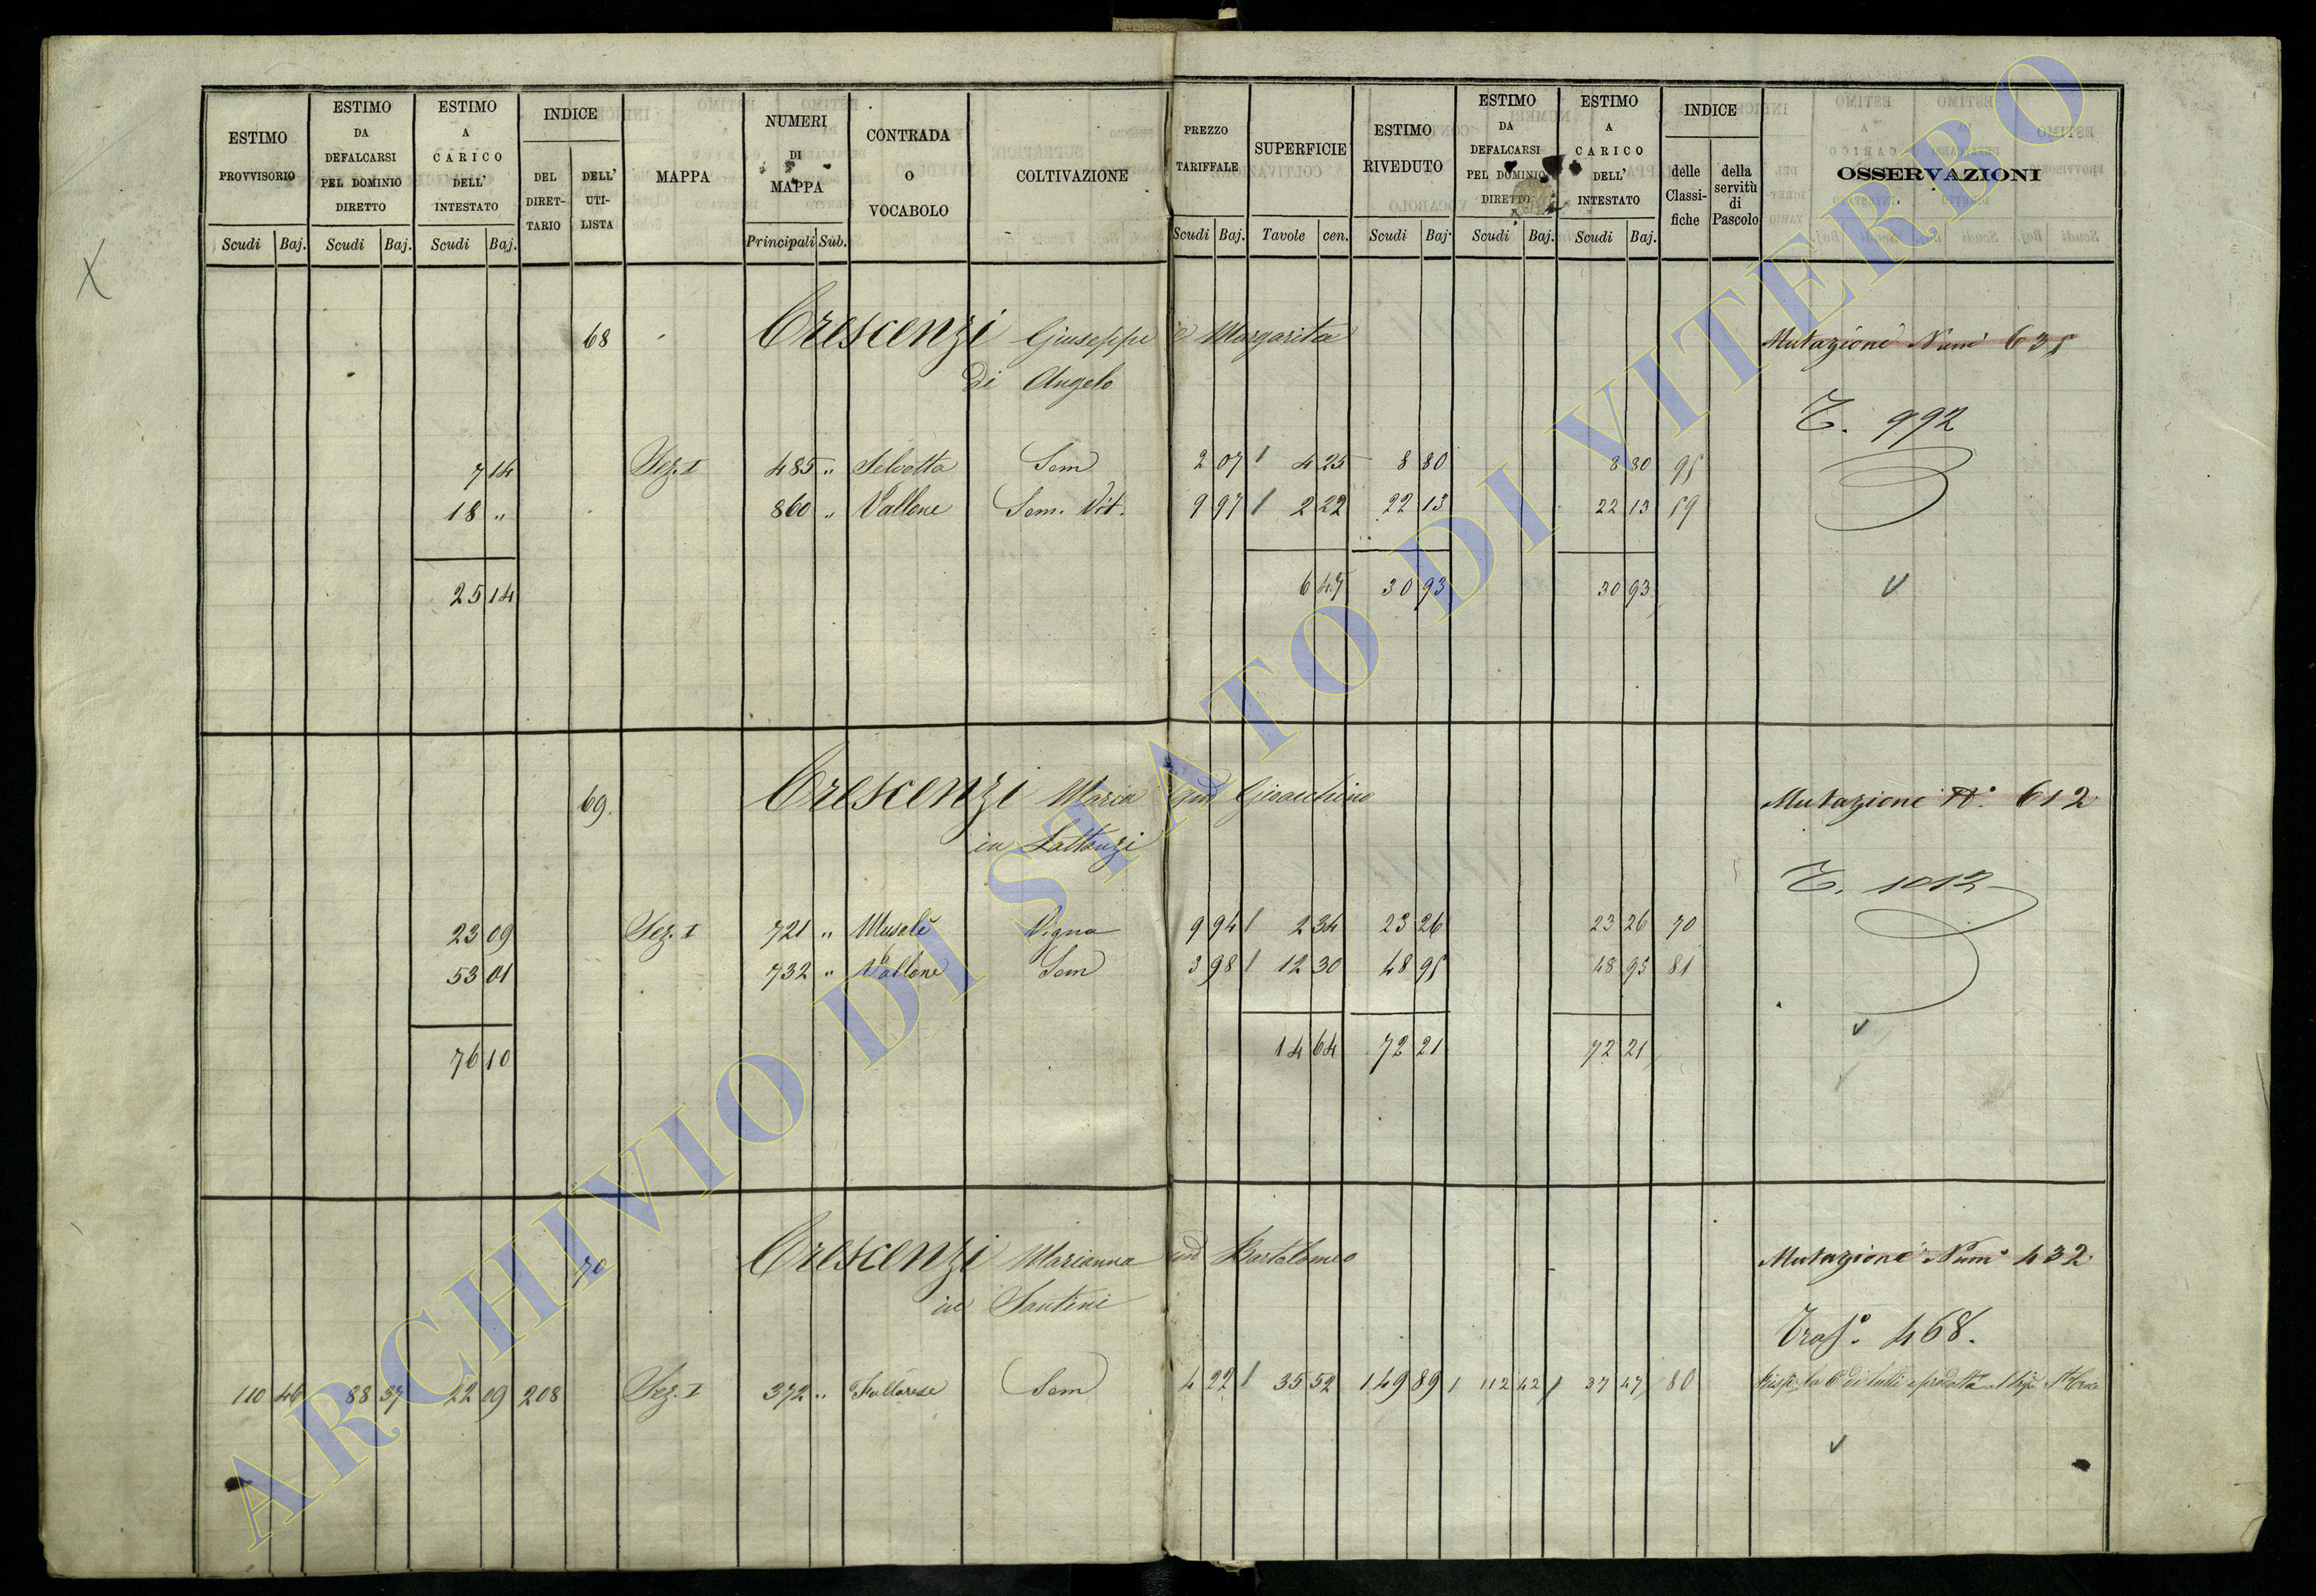 ESTIMO PROVVISORIO
Scudi Baj.
ESTIMO DA DEFALCARSI PEL DOMINIO DIRETTO
Scudi Baj.
ESTIMO A CARICO DELL' INTESTATO
Scudi Baj.
INDICE
DEL DIRET- TARIO
DELL' UTI- LISTA
MAPPA
NUMERI DI MAPPA
Principali Sub.
CONTRADA O VOCABOLO
COLTIVAZIONE
PREZZO TARIFFALE
Scudi Baj.
SUPERFICIE
Tavole cen.
ESTIMO RIVEDUTO
Scudi Baj.
ESTIMO DA DEFALCARSI PEL DOMINIO DIRETTO
Scudi Baj.
ESTIMO A CARICO DELL' INTESTATO
Scudi Baj.
INDICE
delle Classi- fiche
della servitù di Pascolo
OSSERVAZIONI
68 Crescenzi Giuseppe e Margarita Mutazione Num° 635
di Angelo
T. 992
7 14 Sez. I 485 " Selvotta Sem 2 07 4 25 8 80 8 80 95
18 " 860 " Vallone Sem. Vit. 9 97 2 22 22 13 22 13 59
25 14 6 47 30 93 30 93
69. Crescenzi Maria qud Gioacchino Mutazione N°. 612
in Lattanzi
T. 1012
23 09 Sez. I 721 " Musale Vigna 9 94 2 34 23 26 23 26 70
53 01 732 " Vallone Sem 3 98 12 30 48 95 48 95 81
76 10 14 64 72 21 72 21
70 Crescenzi Marianna qud Bartolomeo Mutazione Num° 432
in Santini
Trasf°. 468.
110 46 88 37 22 09 208 Sez. I 372 " Fallarese Sem 4 22 35 52 149 89 112 42 37 47 80
ARCHIVIO DI STATO DI VITERBO